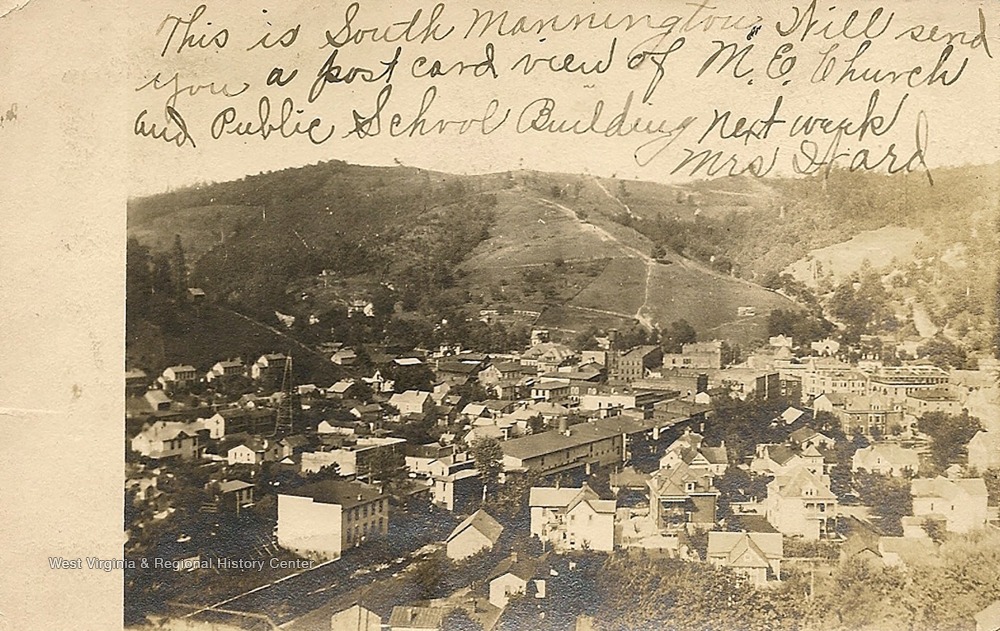 This is South Mannington. Will send
you a post card view of M. E. Church
and Public School Building next week
Mrs Ward
West Virginia & Regional History Center